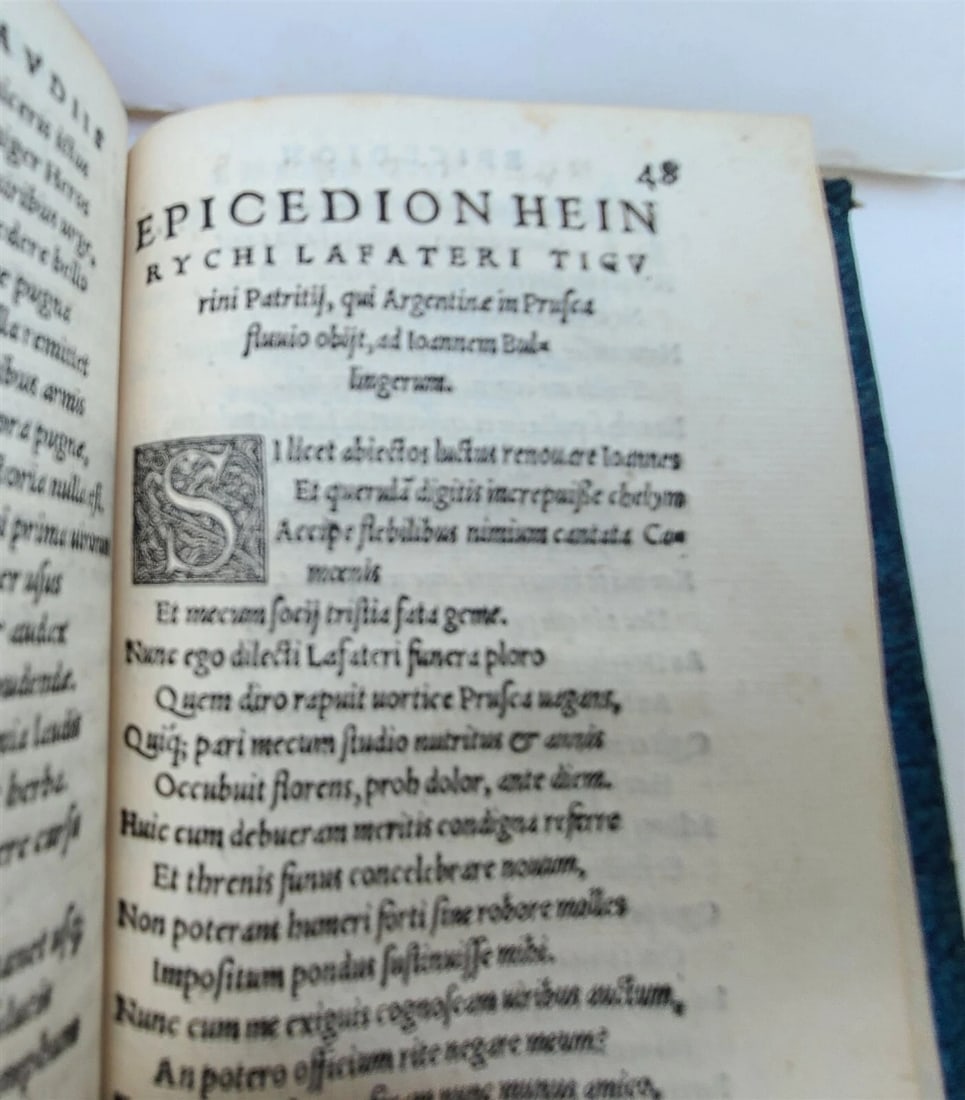 AVDIIS
ictus
iger Heros
uribus
dere bello
pugna
remittet
ibus armis
pugne,
nulla est,
prima
usus
audax
laudis
herba.
cursu
48
EPICEDION HEIN
RYCHI LAFATERI TIGV
rini Patritij, qui Argentinæ in Prusca
fluuio obijt, ad Ioannem Bul=
lingerum.
SI licet abiectos luctus renouare Ioannes
Et querulã digitis increpuisse chelym
Accipe flebilibus nimium cantata Ca=
mœnis
Et mecum socij tristia fata geme.
Nunc ego dilecti Lafateri funera ploro
Quem diro rapuit uortice Prusca uagans,
Quiq; pari mecum studio nutritus & annis
Occubuit florens, proh dolor, ante diem.
Huic cum debueram meritis condigna referre
Et threnis funus concelebrare nouum,
Non poterant humeri forti sine robore molles
Impositum pondus sustinuisse mihi.
Nunc cum me exiguis cognoscam uiribus auctum,
An potero officium rite negare meum?
nunc munus amico,